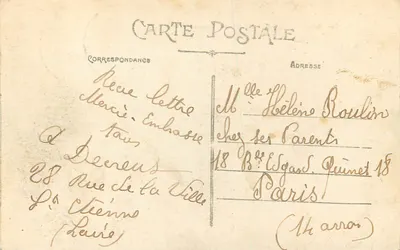 CARTE POSTALE
CORRESPONDANCE
Recu lettre
Merci - Embrasse
tous
A Decreus
28 Rue de la Ville
St Etienne
(Loire)
ADRESSE
Mlle Hélène Roulin
chez ses Parents
18 Bd Edgard Quinet 18
Paris
(14 arron)